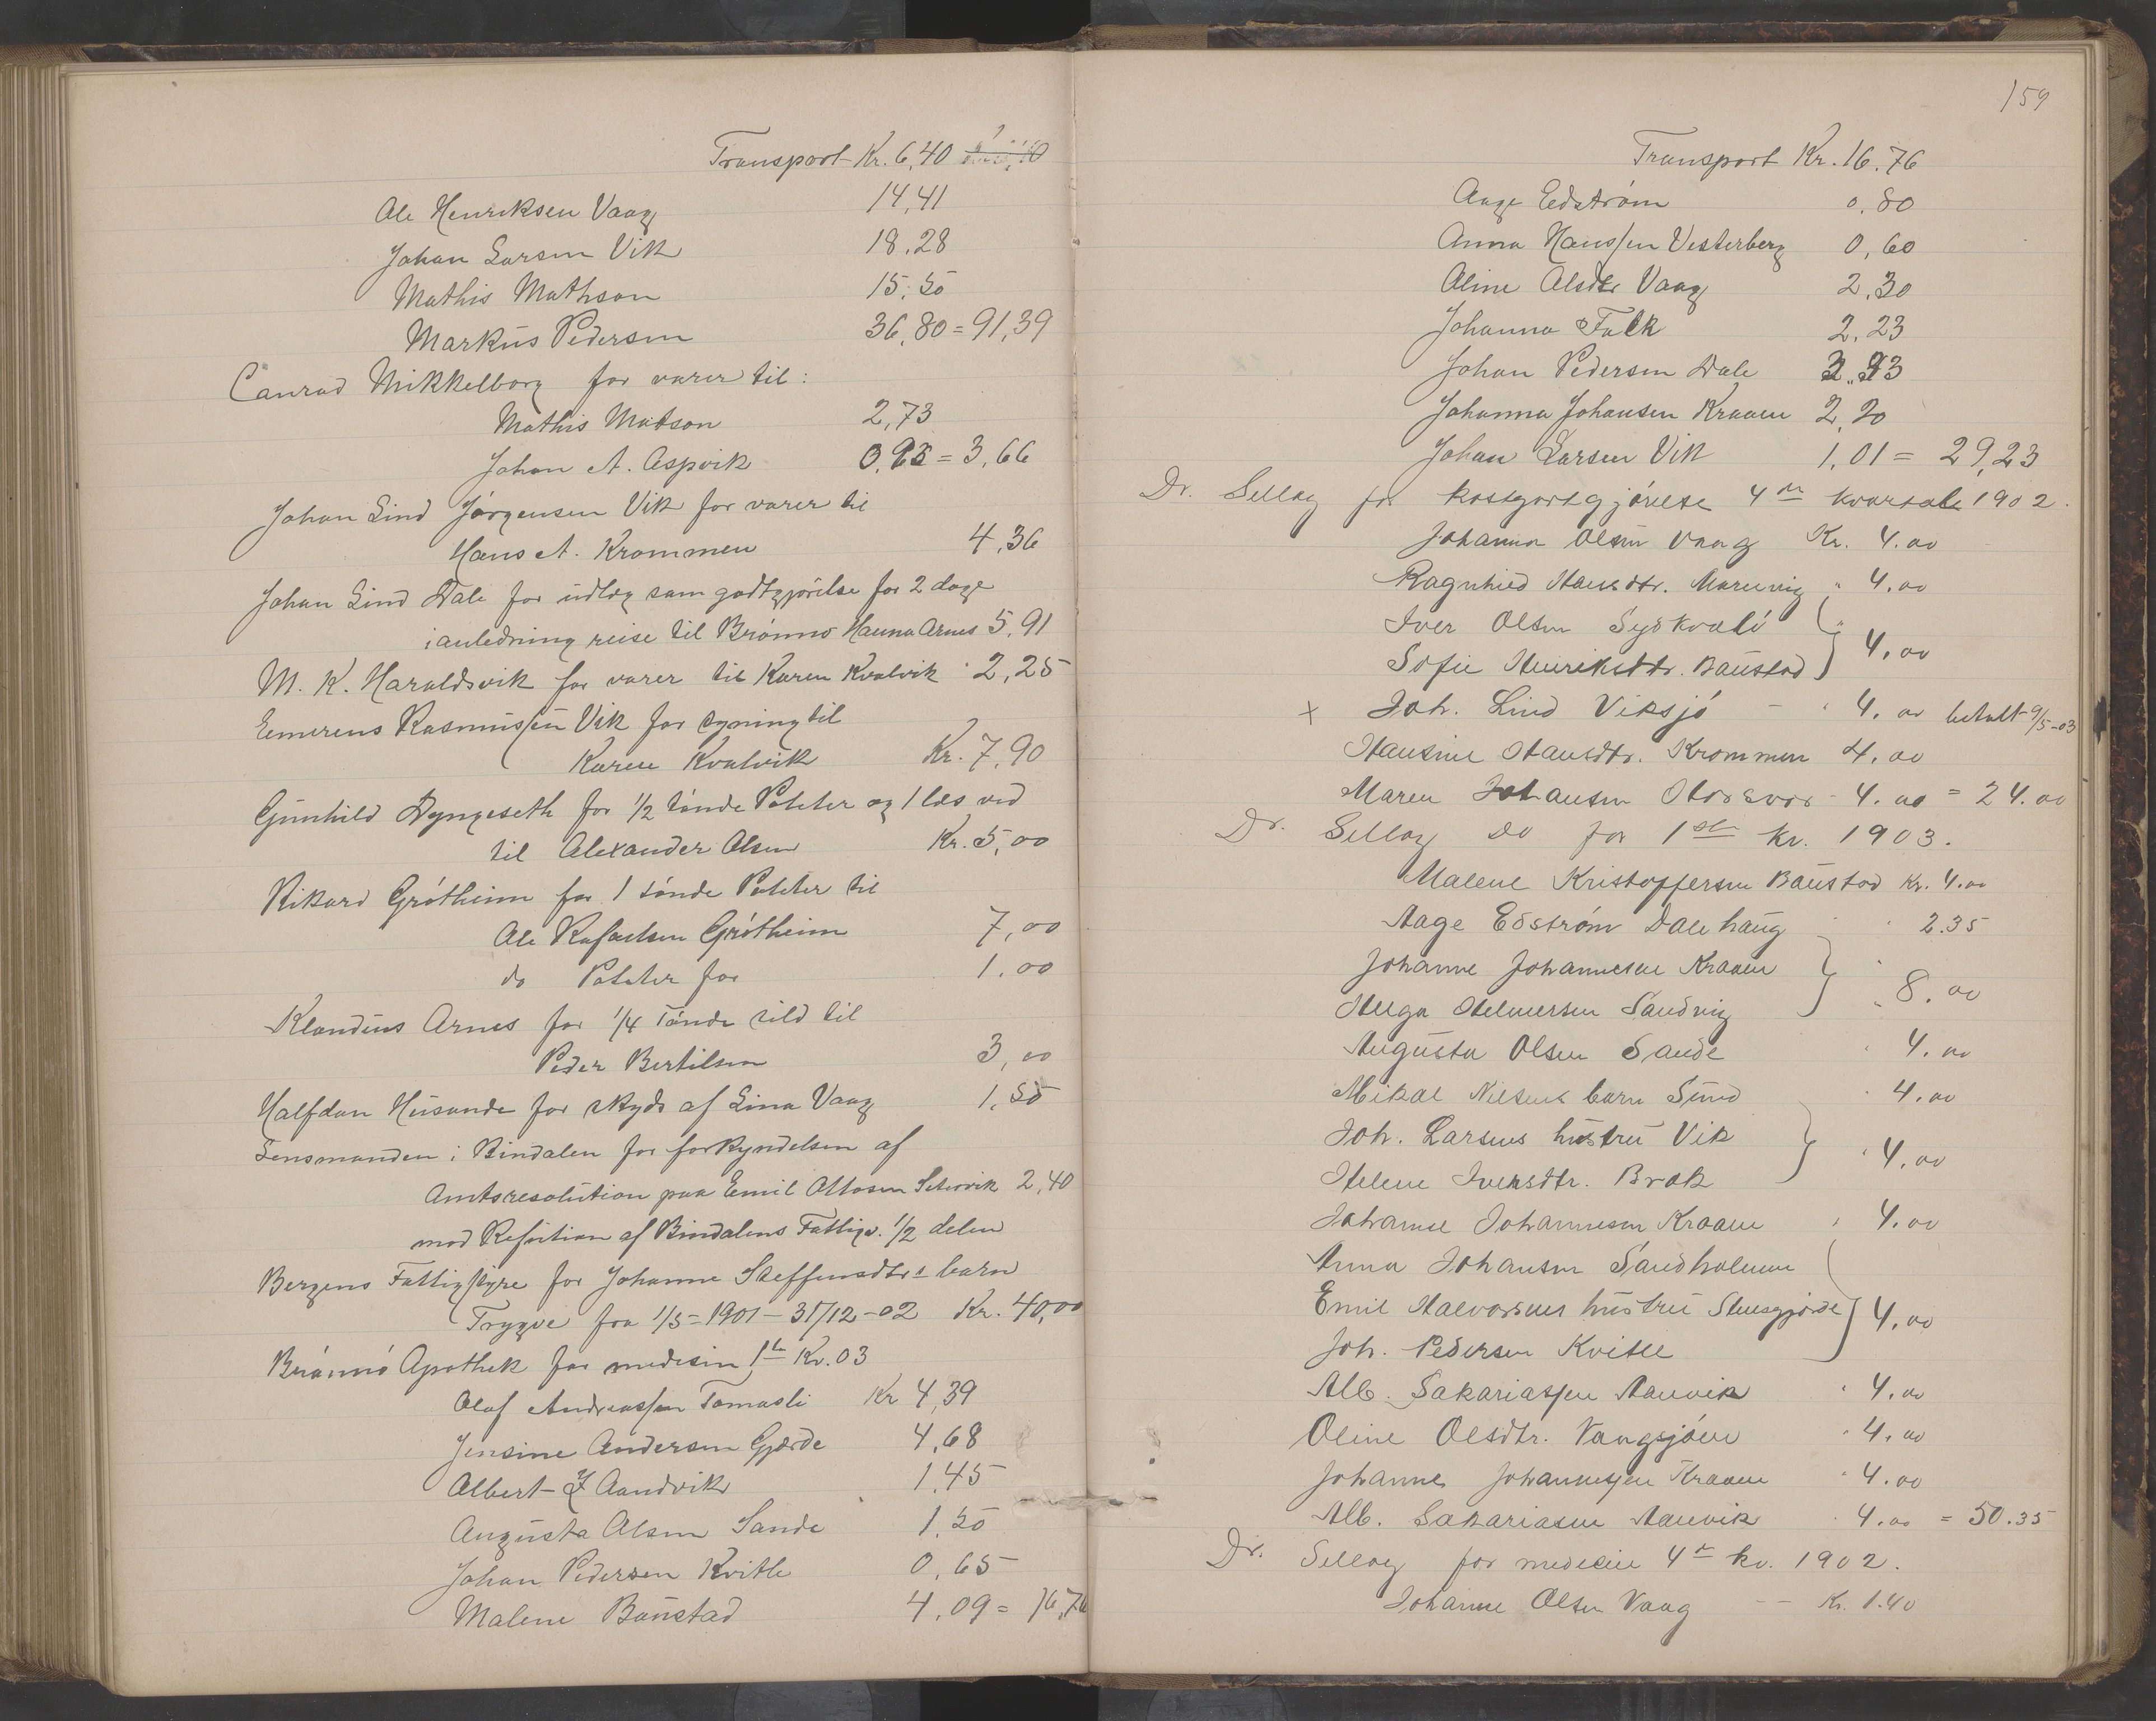 Transport Kr. 6,40
Ole Henriksen Vaag 14,41
Johan Larsen Vik 18,28
Mathis Mathson 15,50
Markus Pedersen 36,80 = 91,39
Conrad Mikkelborg for varer til:
Mathis Matson 2,73
Johan A. Aspvik 0,93 = 3,66
Johan Lind Jørgensen Vik for varer til
Hans A. Krommen 4,36
Johan Lind Dale for udlæg som godtgjörelse for 2 dage
i anledning reise til Brönnö Hanna Arnes 5,91
M. K. Haraldsvik for varer til Karen Kvalvik 2,25
Emerens Rasmussen Vik for syning til
Karen Kvalvik Kr. 7,90
Gunhild Dyngeseth for 1/2 tönde Poteter og 1 læs ved
til Alexander Olsen Kr. 5,00
Rikard Grótheim for 1 tönde Poteter til
Ole Rafaelsen Grótheim 7,00
do Poteter for 1.00
Klaudius Arnes for 1/4 Tönde sild til
Peder Bertilsen 3,00
Halfdan Husande for skyds af Lina Vaag 1,50
Lensmanden i Bindalen for forkyndelsen af
Amtsresolution paa Emil Ottosen Setervik 2,40
mod Refusion af Bindalens Fattigv. 1/2 delen
Bergens Fattigstyre for Johanne Steffensdtrs barn
Trygve fra 1/5-1901 - 31/12-02 Kr. 40,00
Brönnö Apothek for medisin 1ste Kv. 03
Olaf Andreassen Tomasli Kr 4,39
Jensine Andersen Gjærde 4,68
Albert Z Aandvik 1,45
Augusta Olsen Sande 1,50
Johan Pedersen Kvitle 0,65
Malene Bøustad 4,09 = 16,76
159
Transport Kr. 16.76
Aage Edström 0,80
Anna Hanssen Vesterberg 0,60
Aline Olsdtr Vaag 2,30
Johanna Falk 2,23
Johan Pedersen Dale
Johanna Johansen Kraaen 2,20
Johan Larsen Vik 1,01 = 29,23
Dr. Selläg for kostgodtgjörelse 4de kvartal 1902.
Johanna Olsen Vaag Kr. 4.00
Ragnhild Hansdtr. Marenvig " 4.00
Iver Olsen Sydkvalö "
Sofie Henriksdtr. Baustad } 4.00
x Joh. Lind Viksjö - " 4.00 betalt 9/5-03
Hansine Hansdtr. Krommen 4.00
Maren Johansen - 4.00 = 24.00
Dr. Selläg do for 1ste kv. 1903.
Malene Kristoffersen Baustad Kr. 4.00
Aage Edström Dalehaug " 2.35
Johanne Johannesen Kraaen } "
Helga Helmersen Sandvig " 8.00
Augusta Olsen Sande " 4.00
Mikal Nielsens barn Sund " 4.00
Joh. Larsens hustru Vik
Helene Iversdtr. Bræk } " 4.00
Johanne Johannesen Kraaen " 4.00
Anna Johansen Sandholmen
Emil Halvorsens hustru Stensgjörde } 4.00
Joh. Pedersen Kvitle
Alb. Sakariassen Aanvik " 4.00
Oline Olsdtr. Vangsjöen " 4.00
Johanne Johannessen Kraaen " 4.00
Alb. Sakariasen Aanvik " 4.00 = 50.35
Dr. Selläg for medicin 4de kv. 1902.
Johanne Olsen Vaag - - Kr. 1.40